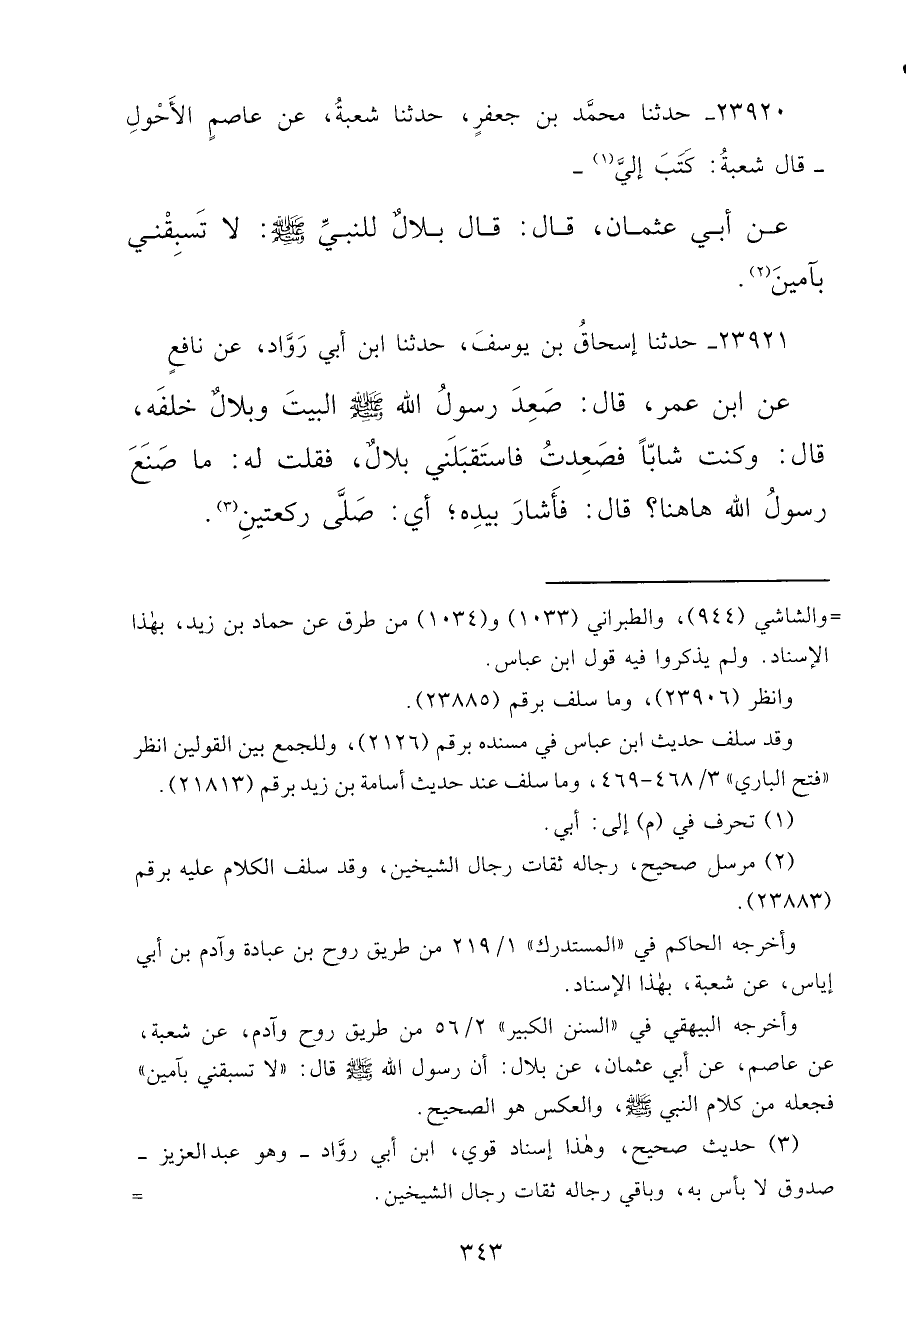 ٢٣٩٢٠ـ حدثنا محمَّد بن جعفرٍ، حدثنا شعبةُ، عن عاصمٍ الأَحْولِ
ـ قال شعبةُ: كَتَبَ إليَّ(١) ـ
عن أبي عثمان، قال: قال بلالٌ للنبيِّ ﷺ: لا تَسبِقْني
بآمينَ(٢).
٢٣٩٢١ـ حدثنا إسحاقُ بن يوسفَ، حدثنا ابن أبي رَوَّاد، عن نافعٍ
عن ابن عمر، قال: صَعِدَ رسولُ الله ﷺ البيتَ وبلالٌ خلفَه،
قال: وكنت شابّاً فصَعِدتُ فاستَقبَلَني بلالٌ، فقلت له: ما صَنَعَ
رسولُ الله هاهنا؟ قال: فأَشارَ بيدِه؛ أي: صَلَّى ركعتينِ(٣).
=والشاشي (٩٤٤)، والطبراني (١٠٣٣) و(١٠٣٤) من طرق عن حماد بن زيد، بهٰذا
الإسناد. ولم يذكروا فيه قول ابن عباس.
وانظر (٢٣٩٠٦)، وما سلف برقم (٢٣٨٨٥).
وقد سلف حديث ابن عباس في مسنده برقم (٢١٢٦)، وللجمع بين القولين انظر
«فتح الباري» ٣/ ٤٦٨-٤٦٩، وما سلف عند حديث أسامة بن زيد برقم (٢١٨١٣).
(١) تحرف في (م) إلى: أبي.
(٢) مرسل صحيح، رجاله ثقات رجال الشيخين، وقد سلف الكلام عليه برقم
(٢٣٨٨٣).
وأخرجه الحاكم في «المستدرك» ١/ ٢١٩ من طريق روح بن عبادة وآدم بن أبي
إياس، عن شعبة، بهٰذا الإسناد.
وأخرجه البيهقي في «السنن الكبير» ٢/ ٥٦ من طريق روح وآدم، عن شعبة،
عن عاصم، عن أبي عثمان، عن بلال: أن رسول الله ﷺ قال: «لا تسبقني بآمين»
فجعله من كلام النبي ﷺ، والعكس هو الصحيح.
(٣) حديث صحيح، وهٰذا إسناد قوي، ابن أبي روَّاد ـ وهو عبدالعزيز ـ
صدوق لا بأس به، وباقي رجاله ثقات رجال الشيخين. =
٣٤٣